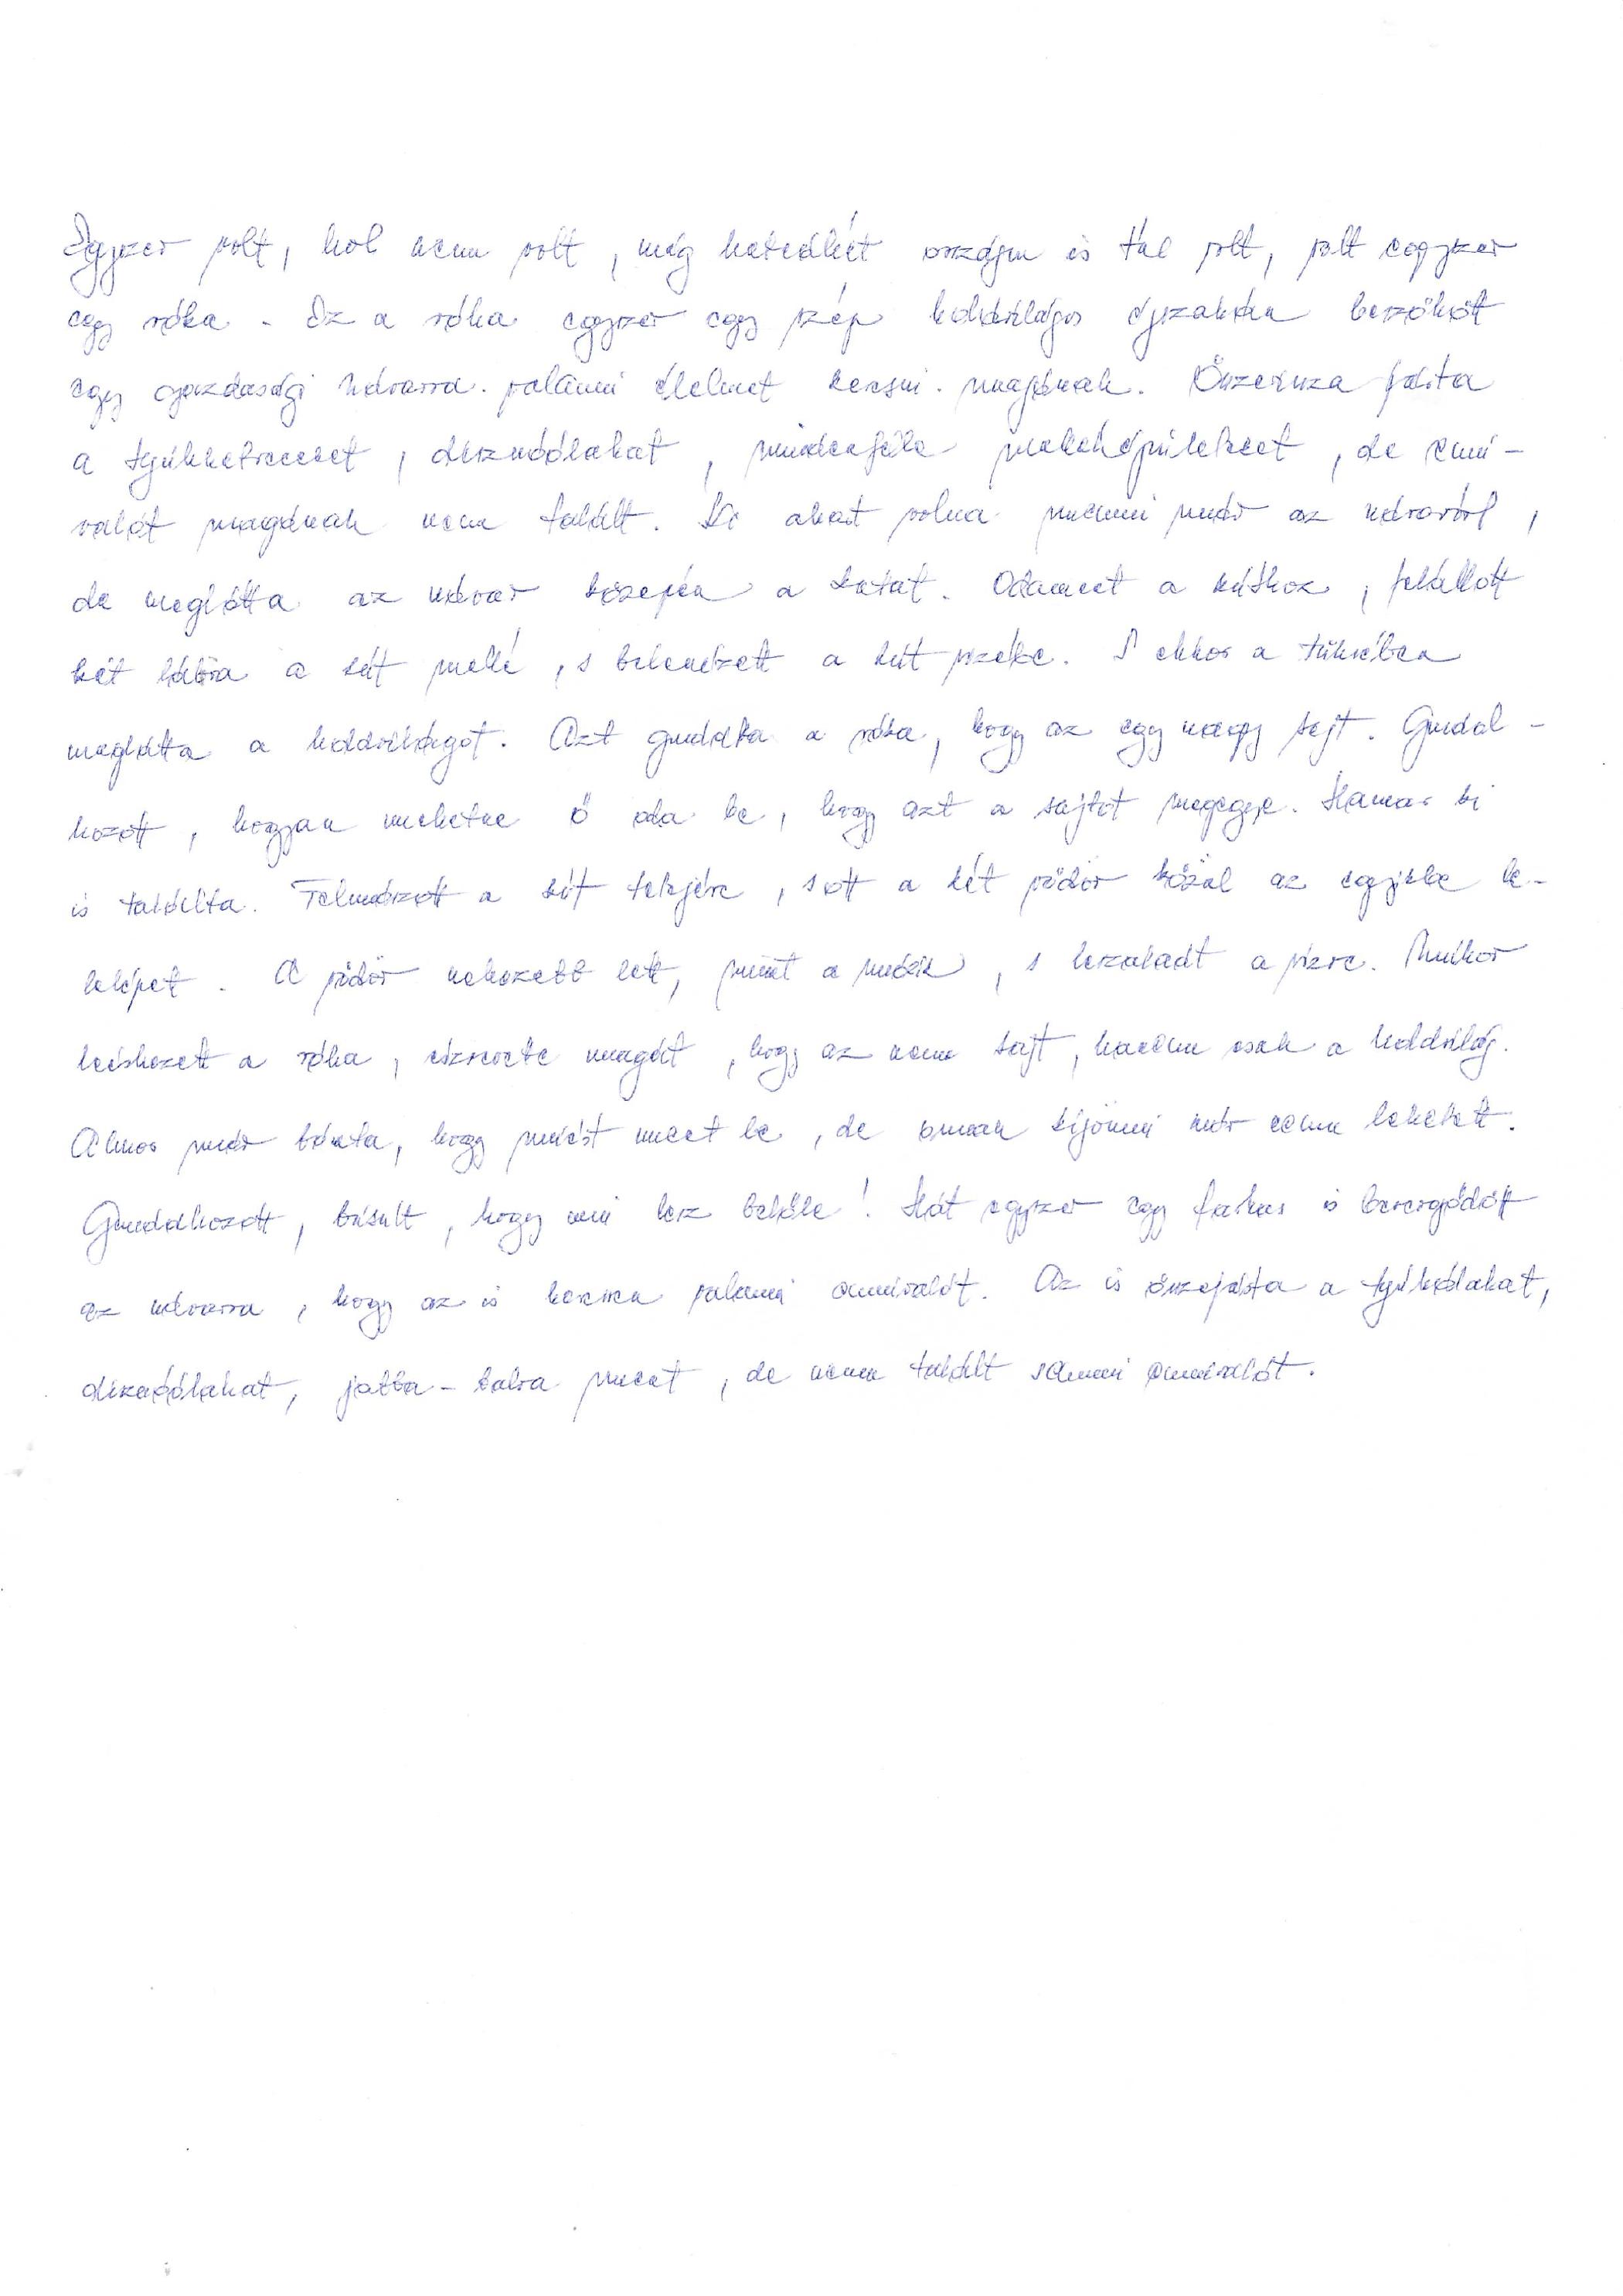 Egyszer volt, hol nem volt, még hetedhét országon is túl volt, volt egyszer
egy róka. Ez a róka egyszer egy szép holdvilágos éjszakán beszökött
egy gazdasági udvarra valami élelmet keresni magának. Összevissza járta
a tyúkketreceket, disznóólakat, mindenféle melléképületeket, de enni-
valót magának nem talált. Ki akart volna menni már az udvaról,
de meglátta az udvar közepén a kutat. Odament a kúthoz, felállott
két lábra a kút mellé, s belenézett a kút vizébe. S ekkor a tükrében
meglátta a holdvilágot. Azt gondolta a róka, hogy az egy nagy sajt. Gondol-
kozott, hogyan mehetne ő oda be, hogy azt a sajtot megegye. Hamar ki
is találta. Felmászott a kút tetejére, s ott a két vödör közül az egyikbe be-
lelépet. A vödör nehezebb lett, mint a másik, s leszaladt a vízre. Mikor
leérkezett a róka, észrevette magát, hogy az nem sajt, hanem csak a holdvilág.
Akkor már bánta, hogy miért ment le, de onnan kijönni már nem lehetett.
Gondolkozott, búsult, hogy mi lesz belőle! Hát egyszer egy farkas is bevergődött
az udvarra, hogy az is keressen valami ennivalót. Az is összejárta a tyúkólakat,
disznóólakat, jobbra-balra ment, de nem talált semmi ennivalót.